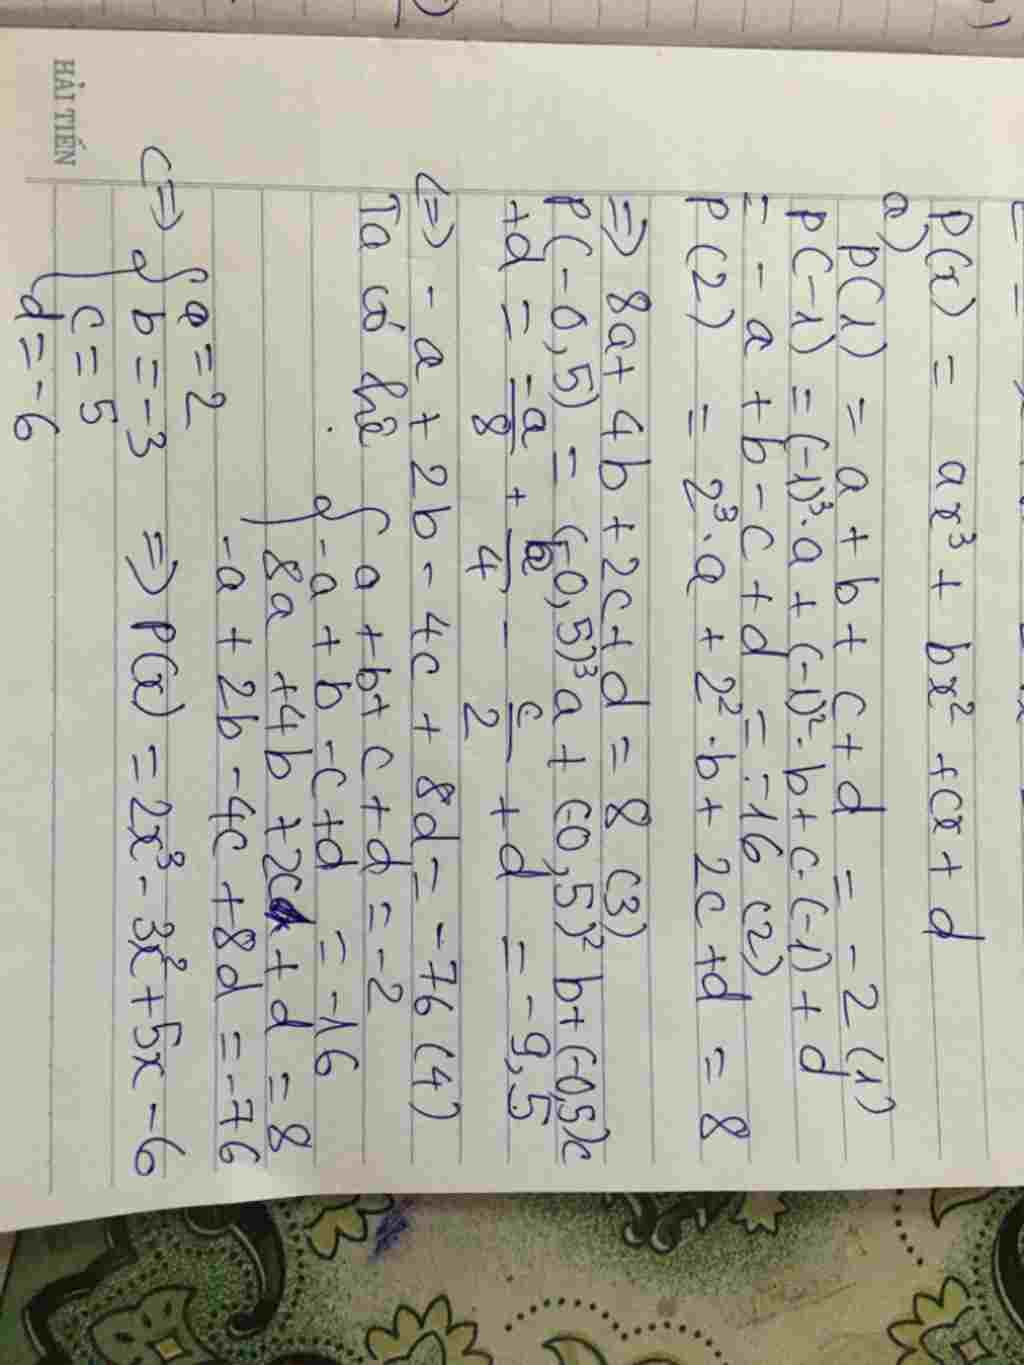 HẢI TIẾN
P(x) = ax³ + bx² + cx + d
a)
P(1) = a + b + c + d = -2 (1)
P(-1) = (-1)³.a + (-1)².b + c.(-1) + d
= -a + b - c + d = -16 (2)
P(2) = 2³.a + 2².b + 2c + d = 8
=> 8a + 4b + 2c + d = 8 (3)
P(-0,5) = (-0,5)³a + (-0,5)²b + (-0,5)c
+d = -a/8 + b/4 - c/2 + d = -9,5
<=> -a + 2b - 4c + 8d = -76 (4)
Ta có hệ { a + b + c + d = -2
-a + b - c + d = -16
8a + 4b + 2c + d = 8
-a + 2b - 4c + 8d = -76
<=> { a = 2
b = -3 => P(x) = 2x³ - 3x² + 5x - 6
c = 5
d = -6